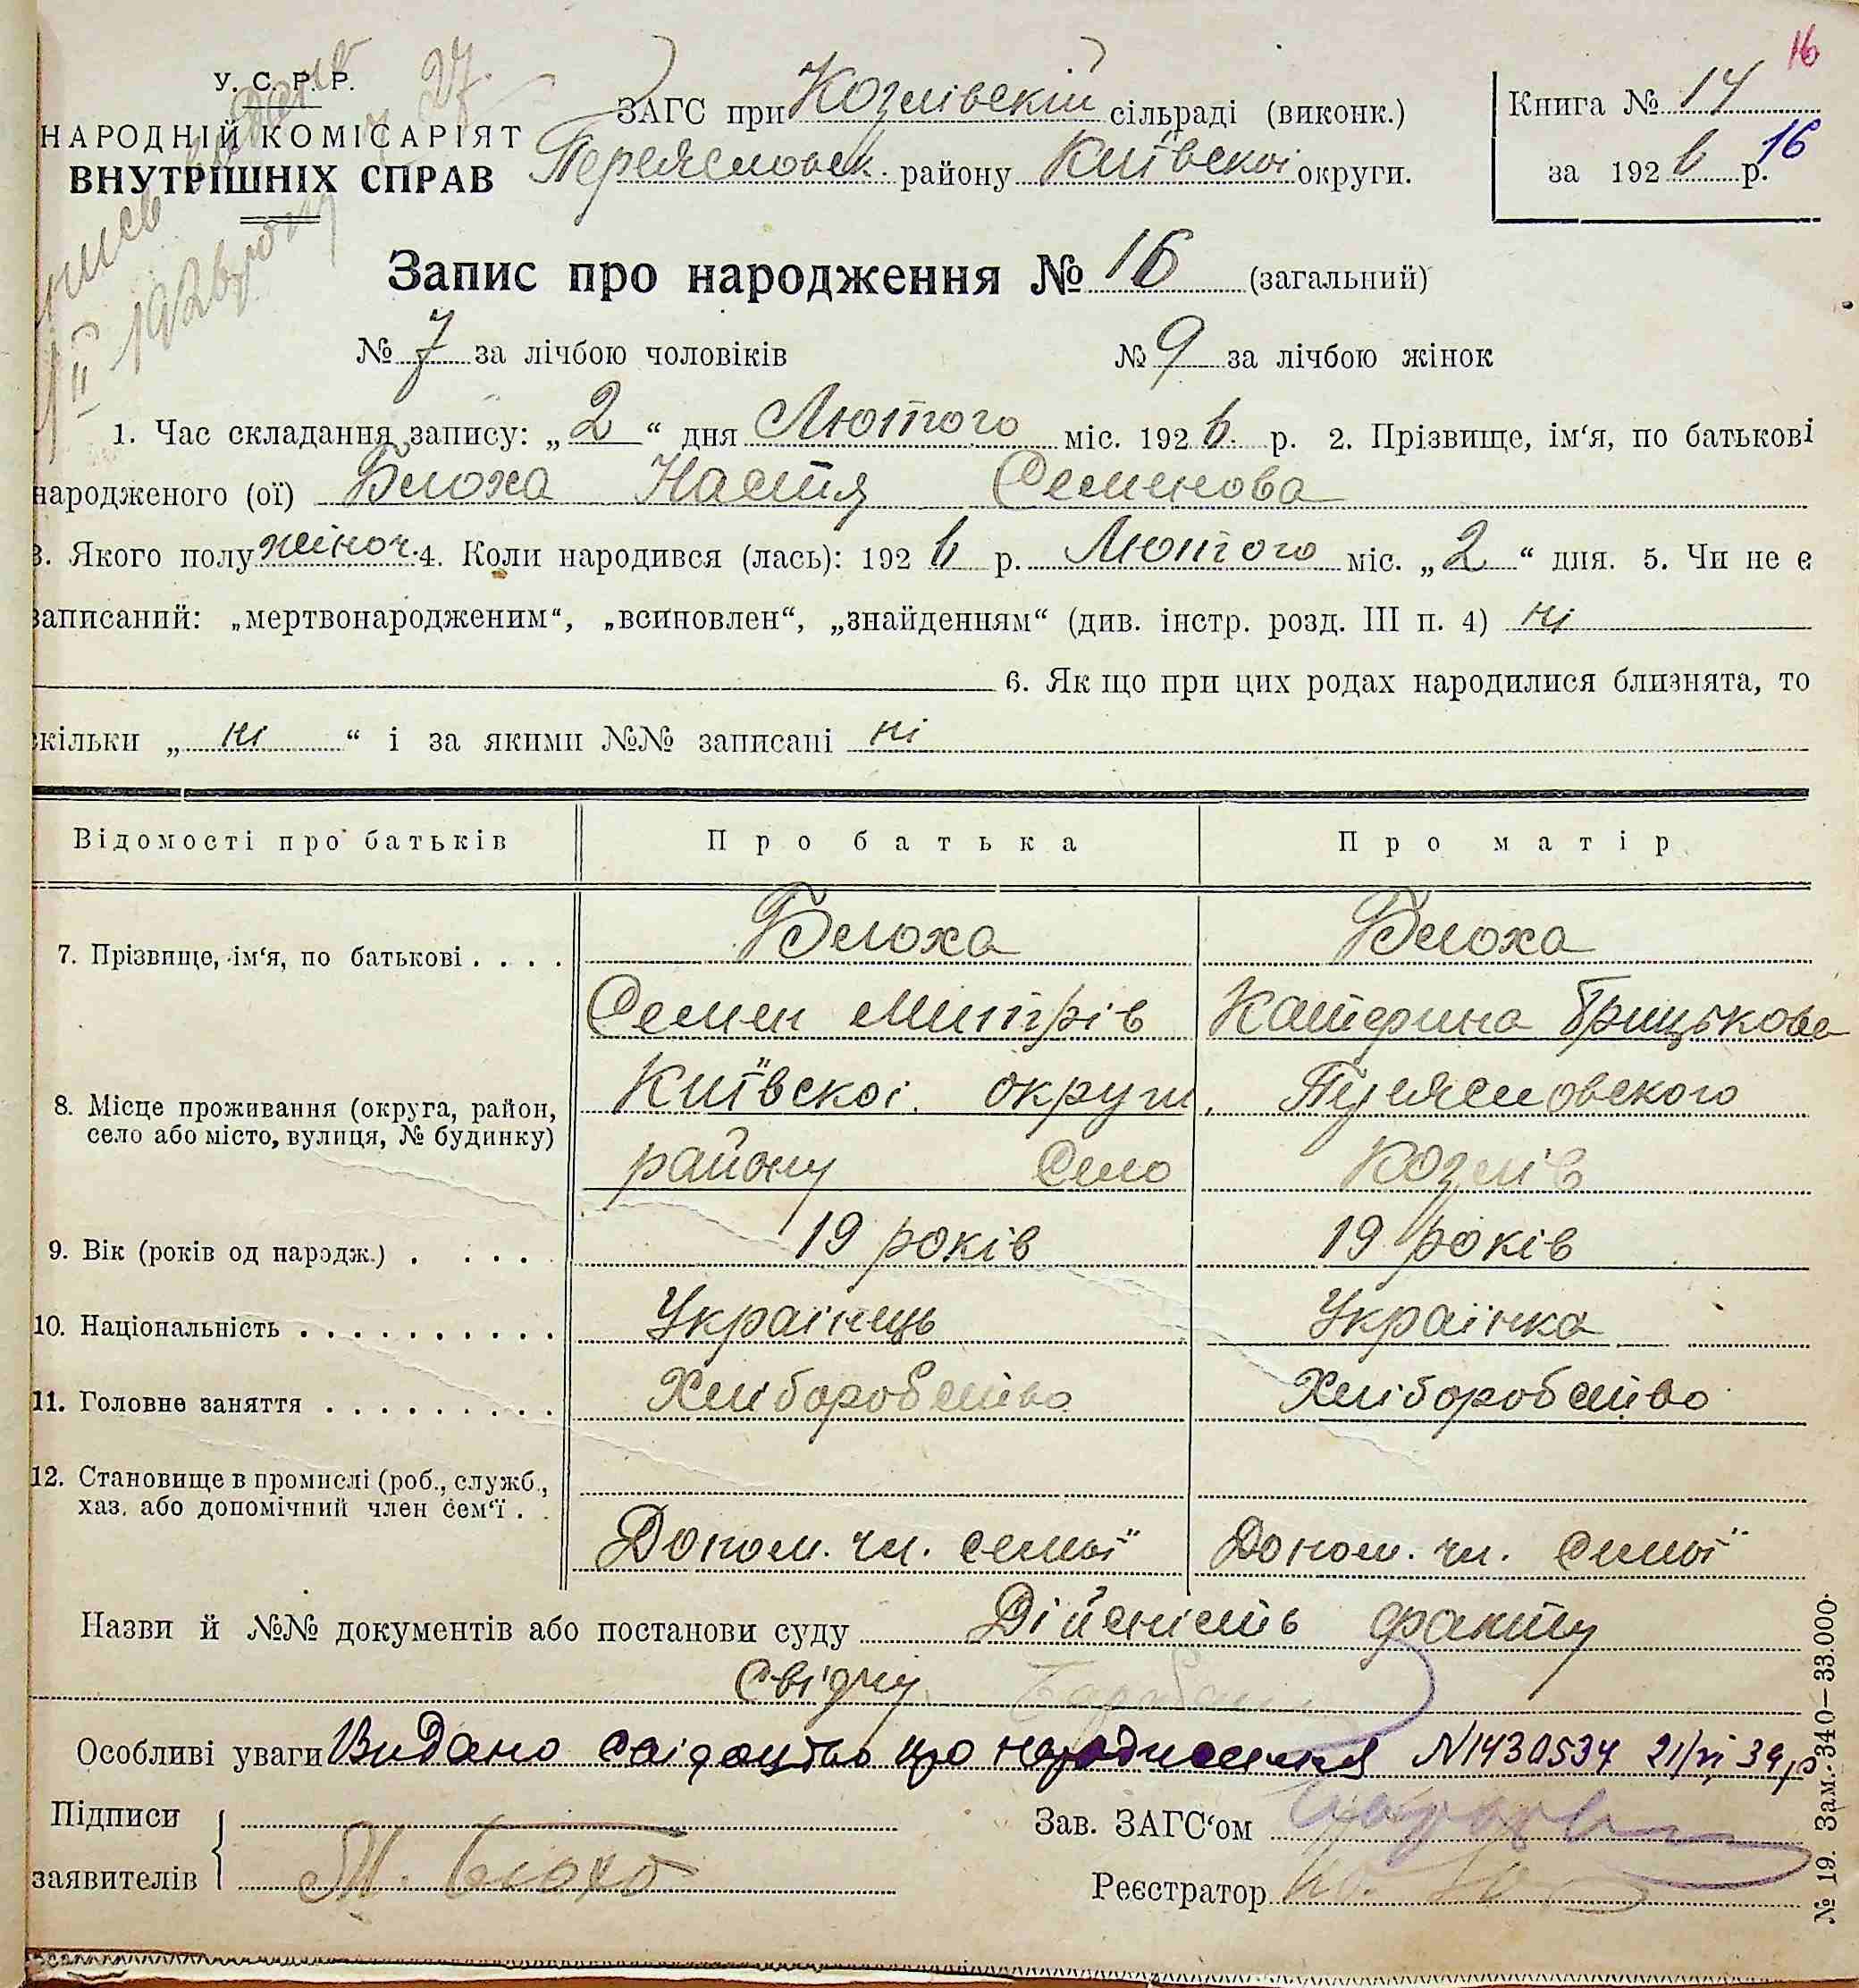 16
У. С. Р. Р.
НАРОДНІЙ КОМІСАРІЯТ
ВНУТРІШНІХ СПРАВ
ЗАГС при Козлівскій сільраді (виконк.)
Переясловск. району Київскої округи.
Книга № 14
за 1926 р. 16
Запис про народження № 16 (загальний)
№ 7 за лічбою чоловіків № 9 за лічбою жінок
1. Час складання запису: „ 2 “ дня Лютого міс. 1926 р. 2. Прізвище, ім‘я, по батькові
народженого (ої) Блоха Настя Семенова
3. Якого полу жіноч. 4. Коли народився (лась): 1926 р. Лютого міс. „ 2 “ дня. 5. Чи не є
записаний: „мертвонародженим“, „всиновлен“, „знайденням“ (див. інстр. розд. III п. 4) ні
6. Як що при цих родах народилися близнята, то
скільки „ ні “ і за якими №№ записані ні
Відомості про батьків Про батька Про матір
7. Прізвище, ім‘я, по батькові . . . . Блоха Блоха
Семен Митрів Катерина Грицькова
8. Місце проживання (округа, район, село або місто, вулиця, № будинку) Київскої округи, Переясловского
району Село Козлів
9. Вік (років од народж.) . . . . 19 років 19 років
10. Національність . . . . . . . . . . Українець Українка
11. Головне заняття . . . . . . . . . Хліборобство Хліборобство
12. Становище в промислі (роб., служб.,
хаз. або допомічний член сем‘ї . .
Допом. чл. семьї Допом. чл. семьї
Назви й №№ документів або постанови суду Дійсність факту
свідчу
Особливі уваги Видано свідоцтво про народження N1430534 21/VI 39 р
Підписи
заявителів М. Блоха
Зав. ЗАГС‘ом
Реєстратор
№ 19. Зам. 340—33.000.